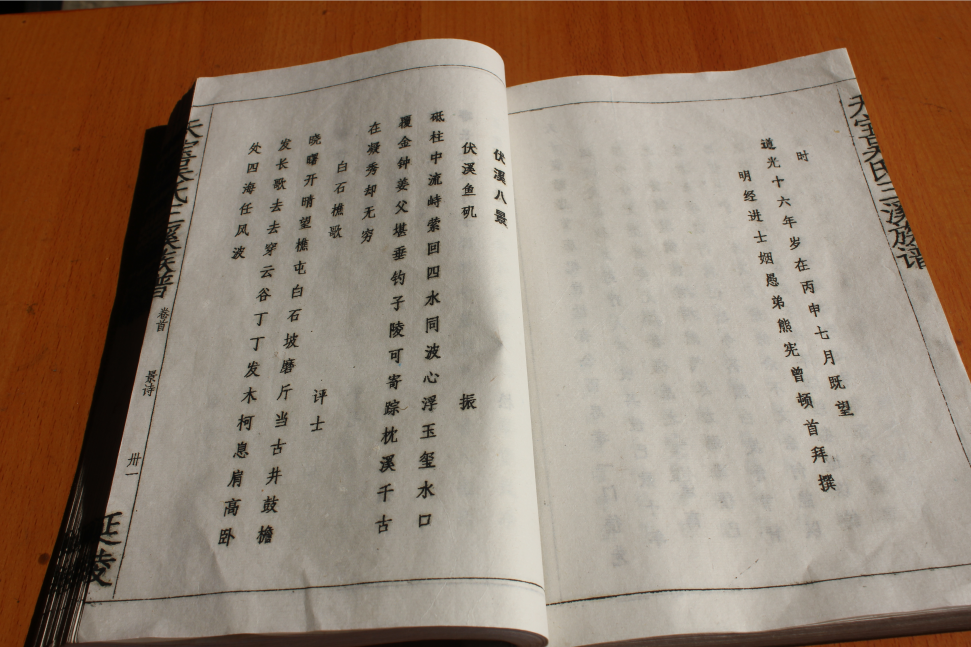 天宝吴氏三溪族谱
时
道光十六年岁在丙申七月既望
明经进士姻愚弟熊宪曾顿首拜撰
伏溪八景
伏溪鱼矶 振
砥柱中流峙萦回四水同波心浮玉玺水口
覆金钟姜父堪垂钓子陵可寄踪枕溪千古
在凝秀却无穷
白石樵歌 评士
晓曙开晴望樵屯白石坡磨斤当古井鼓檐
发长歌去去穿云谷丁丁发木柯息肩高卧
处四海任风波
天宝吴氏三溪族谱 卷首 景诗 卅一 延陵